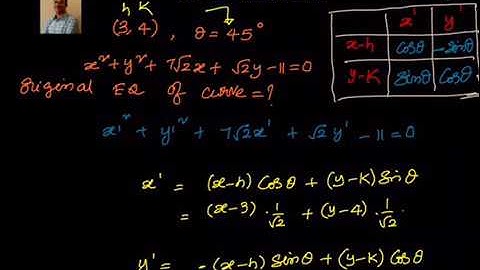 h K
(3, 4) , θ = 45°
x² + y² + 7√2x + √2y - 11 = 0
Original EQ of curve = ?
x' y'
x-h cosθ -sinθ
y-K sinθ cosθ
x'² + y'² + 7√2x' + √2y' - 11 = 0
x' = (x-h) Cosθ + (y-K) Sinθ
= (x-3) · 1/√2 + (y-4) · 1/√2
y' = -(x-h) Sinθ + (y-K) Cosθ